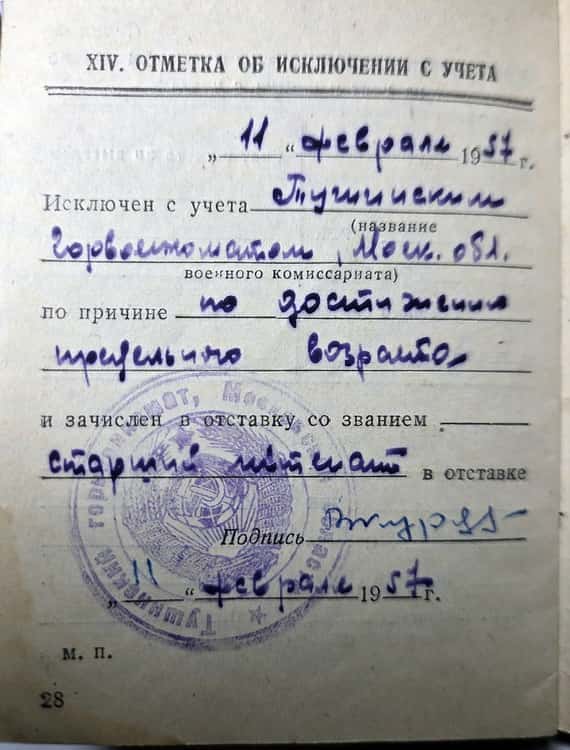 XIV. ОТМЕТКА ОБ ИСКЛЮЧЕНИИ С УЧЕТА
„ 11 “ февраля 1957 г.
Исключен с учета Тушинским
(название
Горвоенкоматом, Моск. обл.
военного комиссариата)
по причине по достижению
предельного возраста
и зачислен в отставку со званием
старший лейтенант в отставке
Подпись
„ 11 “ февраля 1957 г.
Тушинский горвоенкомат, Московской области
м. п.
28